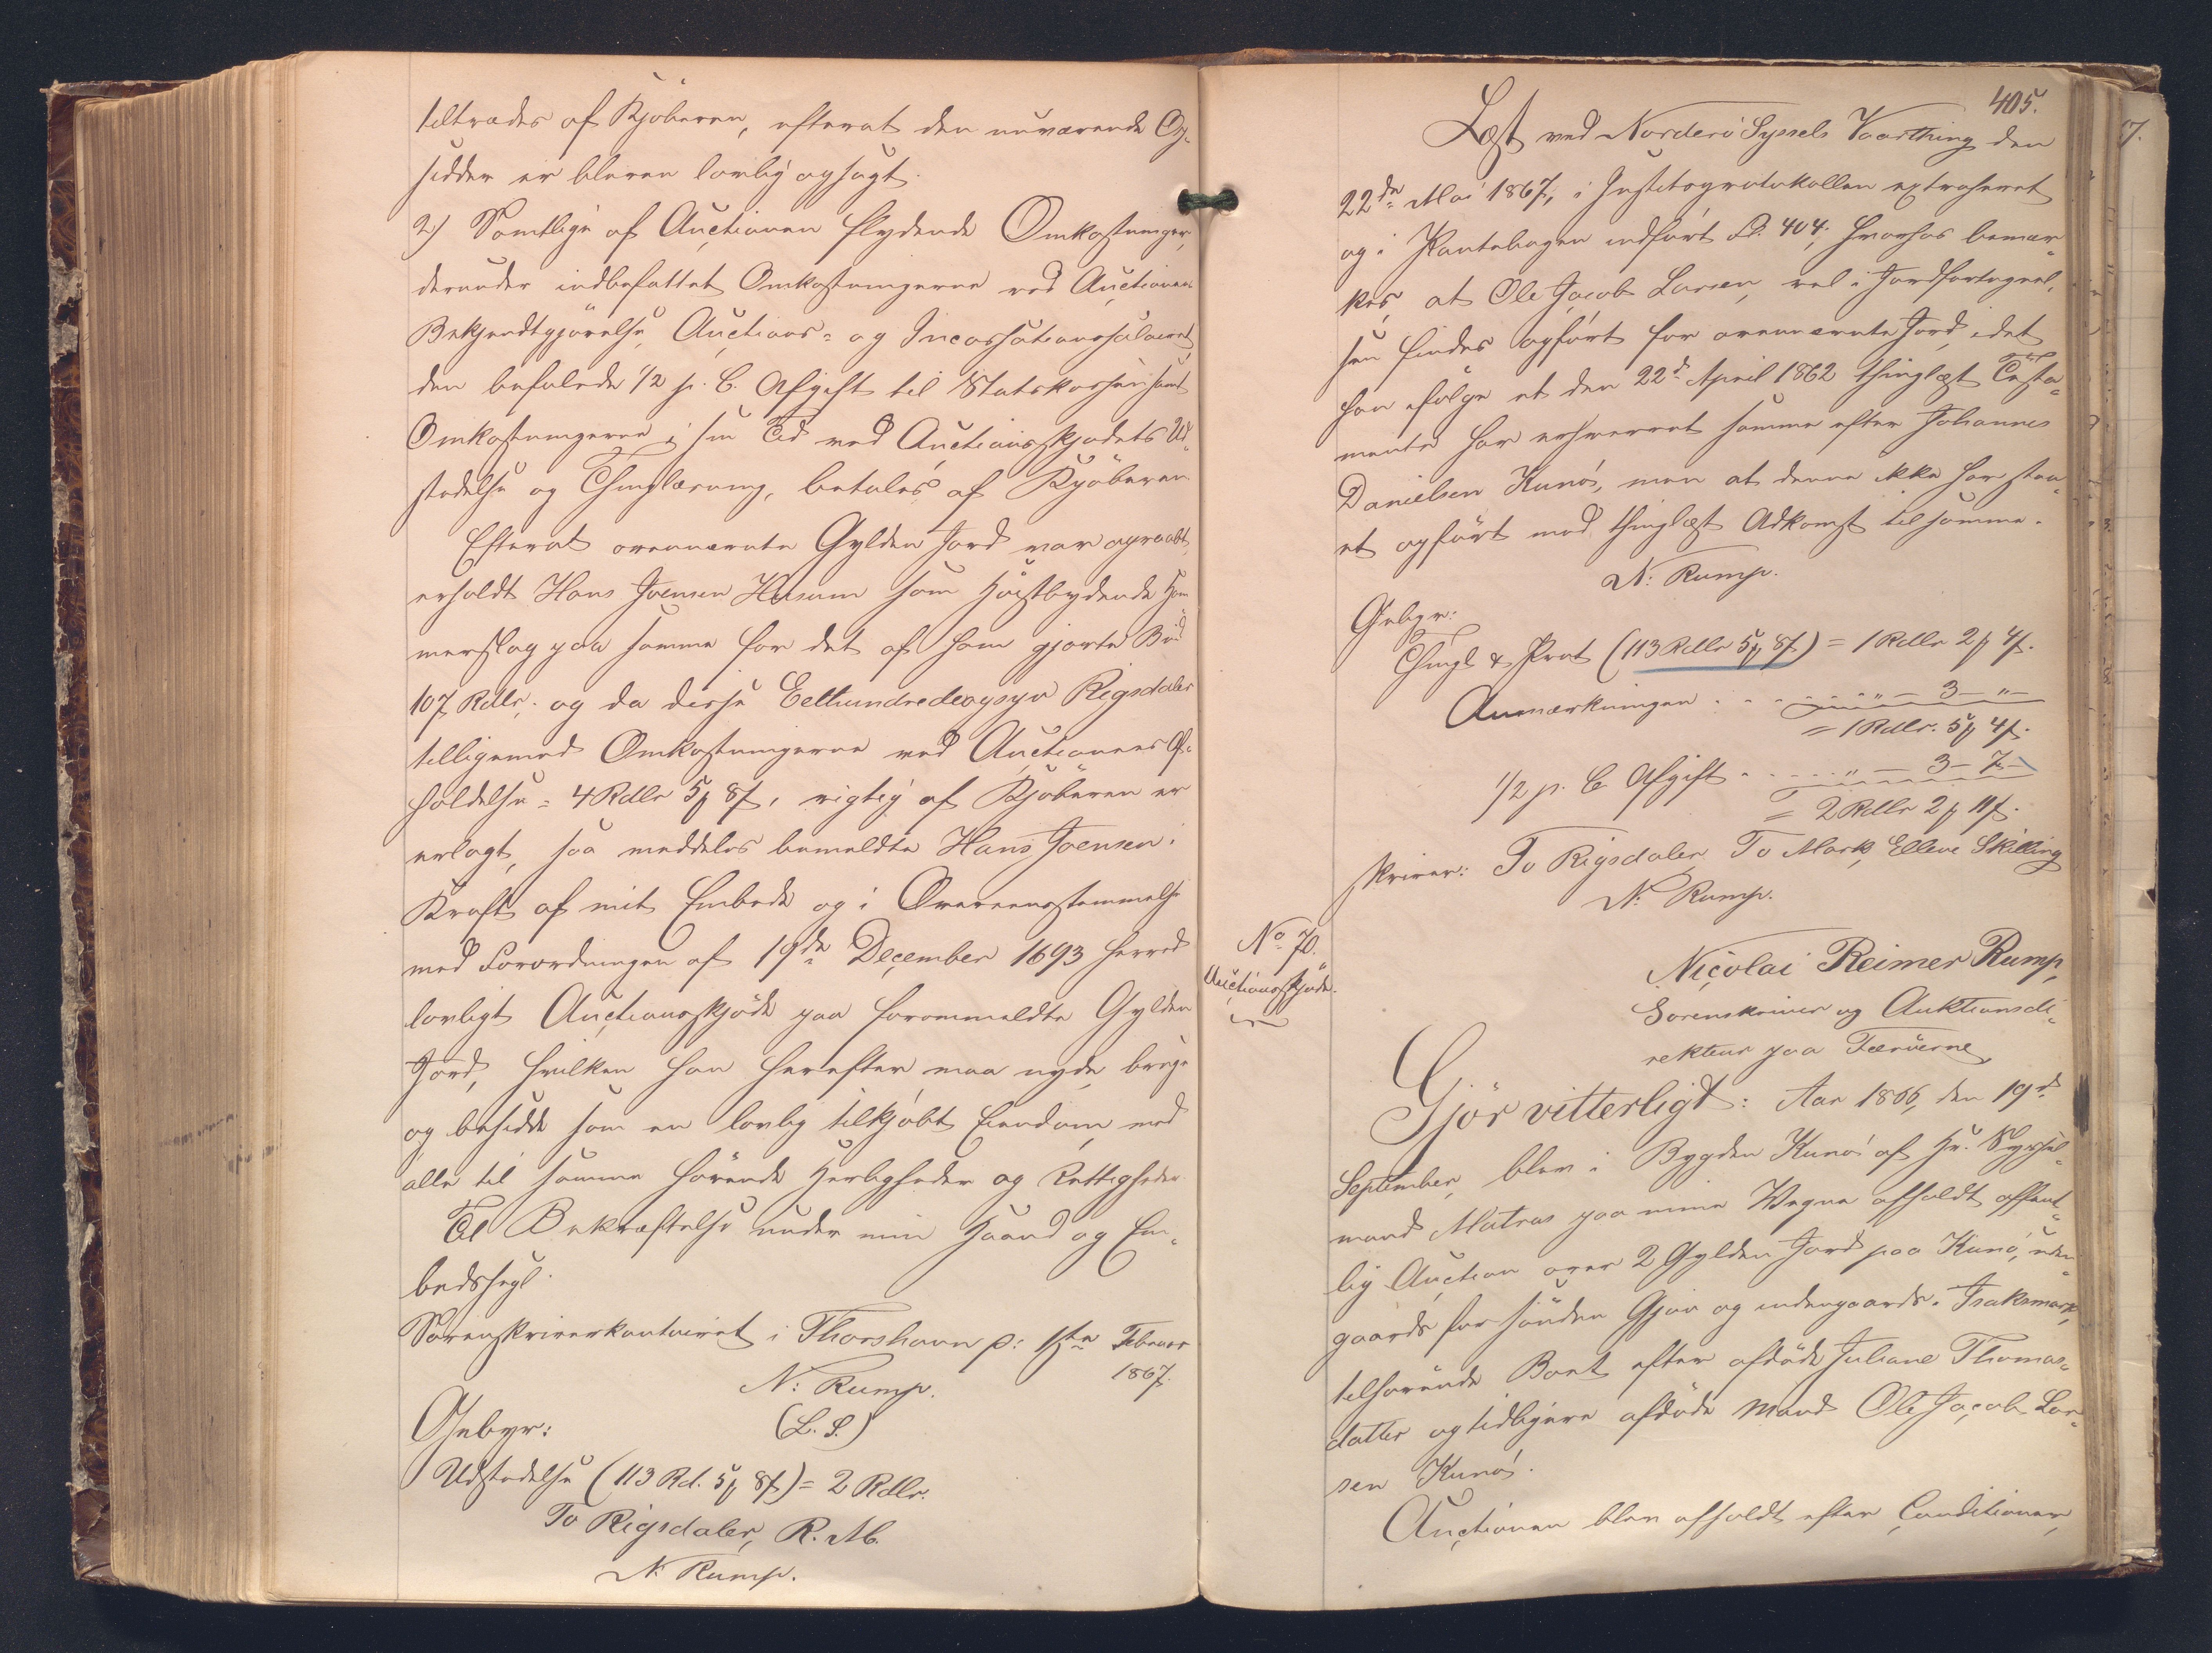 tiltrædes af Kjøberen, efterat den nuværende Op-
sidder er bleven lovlig opsagt.
2) Samtlige af Auctionen flydende Omkostninger,
derunder indbefattet Omkostningerne ved Auctionens
Bekjendtgjørelse, Auctions- og Incassationssalairet,
den befalede 1/2 p. C. Afgift til Statskassen samt
Omkostningerne i sin Tid ved Auctionsskjødets Ud-
stedelse og Thinglæsning, betales af Kjøberen.
Efterat ovennævnte Gylden Jord var opraabt,
erholdt Hans Joensen Husum som Høistbydende Ham-
merslag paa samme for det af ham gjorte Bud
107 Rdlr.; og da disse Eethundredeogsyv Rigsdaler
tilligemed Omkostningerne ved Auctionens Af-
holdelse = 4 Rdlr 5 ℔ 8 ß, rigtig af Kjøberen er
erlagt, saa meddeles bemeldte Hans Joensen i
Kraft af mit Embede og i Overeensstemmelse
med Forordningen af 19de December 1693 herved
lovligt Auctionsskjøde paa forommeldte Gylden
Jord, hvilken han herefter maa nyde, bruge
og besidde som en lovlig tilkjøbt Eiendom, med
alle til samme hørende Herligheder og Rettigheder
Til Bekræftelse under min Haand og Em-
bedssegl.
Sorenskriverkontoiret i Thorshavn p: 1ste Februar
1867.
N: Rump.
(L. S.)
Gebyr:
Udstedelse (113 Rd. 5 ℔ 8 ß) = 2 Rdlr.
To Rigsdaler, R. M.
N. Rump.
405.
Læst ved Norderø Syssels Vaarthing den
22de Mai 1867, i Justitsprotokollen extraheret
og i Pantebogen indført Fol. 404; hvorhos bemær-
kes, at Ole Jacob Larsen, vel i Jordfortegnel-
sen findes opført for ovennævnte Jord, idet
han ifølge et den 22de April 1862 thinglæst Testa-
mente har erhvervet samme efter Johannes
Danielsen Kunø, men at denne ikke har staa-
et opført med thinglæst Adkomst til samme.
N: Rump.
Gebyr:
Thingl & Prot (113 Rdlr 5 ℔ 8 ß) = 1 Rdlr 2 ℔ 4 ß.
Anmærkningen . . . . . " — 3 — " —
= 1 Rdlr. 5 ℔ 4 ß.
1/2 p. C Afgift . . . . . " — 3 — 7 —
= 2 Rdlr 2 ℔ 11 ß.
skriver: To Rigsdaler To Mark, Elleve Skilling
N: Rump.
No 70.
Auctionsskjøde.
Nicolai Reimer Rump,
Sorenskriver og Auktionsdi-
rekteur paa Færøerne,
Gjør vitterligt: Aar 1866, den 19de
September, blev i Bygden Kunø af Hr. Syssel-
mand Matras paa mine Vegne afholdt offent-
lig Auction over 2 Gylden Jord paa Kunø, uden-
gaards for sønden Gjov og indengaards i Isaksmark,
tilhørende Boet efter afdøde Juliane Thomas-
datter og tidligere afdøde Mand Ole Jacob Lar-
sen Kunø.
Auctionen blev afholdt efter Conditioner,